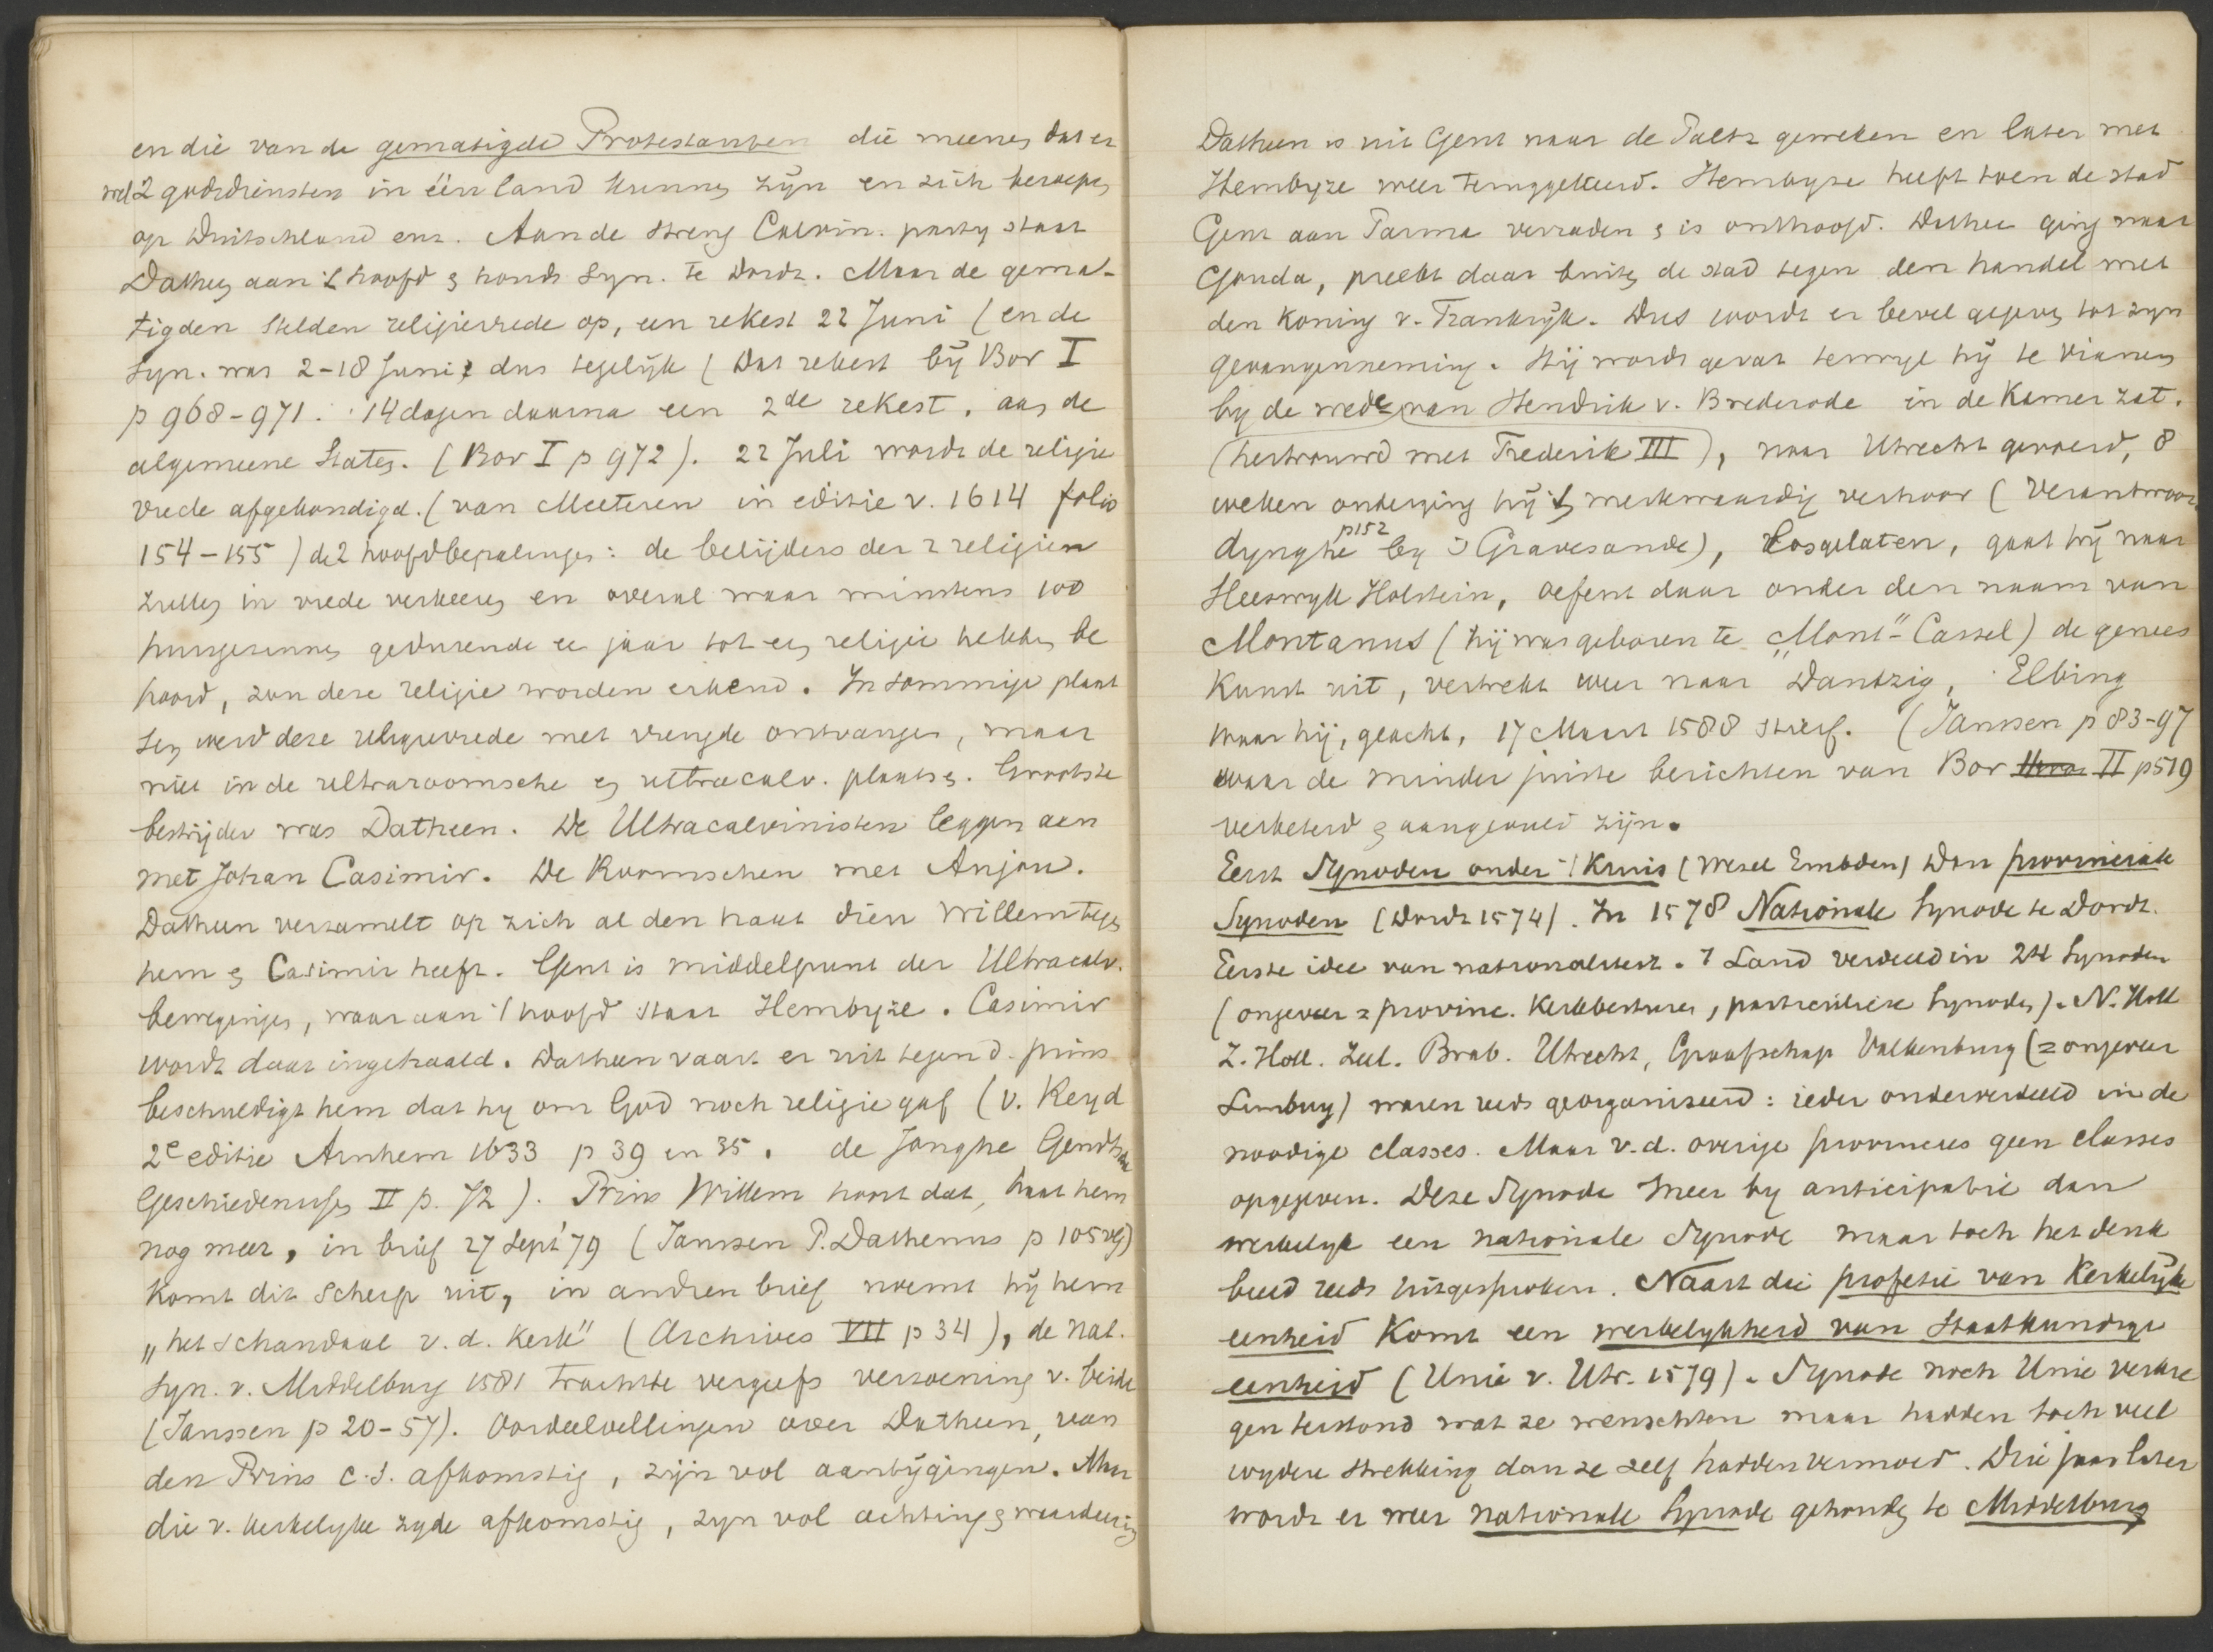 en die van de gematigde Protestanten die meenen dat er
wel 2 godsdiensten in één land kunnen zijn en zich beroepen
op Duitschland enz. Aan de streng Calvin. party staat
Dathen aan 't hoofd & houdt Syn. te Dordt. Maar de gema-
tigden stelden religievrede op, een rekest 22 Juni (en de
Syn. was 2-18 Juni, dus tegelijk (Dat rekest bij Bor I
p 968-971. 14 dagen daarna een 2de rekest, aan de
algemeene Staten. (Bor I p 972). 22 Juli wordt de religie
vrede afgekondigd. (van Meeteren in editie v. 1614 folio
154-155) de 2 hoofdbepalingen: de belijders der 2 religien
zullen in vrede verkeeren en overal waar minstens 100
huisgezinnen gedurende ee jaar tot een religie hebben be
hoord, zou deze religie worden erkend. In sommige plaat
sen werd deze religievrede met vreugde ontvangen, maar
niet in de ultraroomsche en ultracalv. plaatsen. Grootste
bestrijder was Datheen. De Ultracalvinisten leggen aan
met Johan Casimir. De Roomschen met Anjou.
Datheen verzamelt op zich al den haat dien Willem tegen
hem & Casimir heeft. Gent is middelpunt der Ultracalv.
bewegingen, waar aan 't hoofd staat Hembyze. Casimir
wordt daar ingehaald. Datheen vaart er uit tegen d. prins
beschuldigt hem dat hy om God noch religie gaf (v. Reyd
2e editie Arnhem 1633 p 39 en 35. de Jonghe Gendtsche
Geschiedenissen II p. 72). Prins Willem hoort dat, haat hem
nog meer, in brief 27 Sept '79 (Janssen P. Dathenus p 105 vlg)
komt dit scherp uit, in andren brief noemt hij hem
„het schandaal v. d. Kerk" (Archives VII p 34), de Nat.
Syn. v. Middelburg 1581 trachtte vergeefs verzoening v. beide
(Janssen p 20-57). Oordeelvellingen over Datheen, van
den Prins c.s. afkomstig, zijn vol aantijgingen. Maar
die v. kerkelyke zyde afkomstig, zyn vol achting & waardeering
Datheen is uit Gent naar de Paltz geweken en later met
Hembyze weer teruggekeerd. Hembyze heeft toen de stad
Gent aan Parma verraden & is onthoofd. Dathee ging naar
Gouda, preekt daar buiten de stad tegen den handel met
den Koning v. Frankrijk. Dus wordt er bevel gegeven tot zyn
gevangenneming. Hij wordt gevat terwyl hij te Vianen
by de wede van Hendrik v. Brederode in de Kamer zat.
(hertrouwd met Frederik III), naar Utrecht gevoerd, 8
weken onderging hij 't merkwaardig verhoor (Verantwoor
dynghe p152 by 's Gravesande), Losgelaten, gaat hij naar
Heeswyk Holstein, oefent daar onder den naam van
Montanus (hij was geboren te „Mont" Cassel) de genees
kunst uit, vertrekt weer naar Dantzig, Elbing
waar hij, geacht, 17 Maart 1588 stierf. (Janssen p 83-97
waar de minder juiste berichten van Bor II p519
verbeterd & aangevuld zijn.
Eerst Synoden onder 't Kruis (Wesel Embden) Dan provinciale
Synoden (Dordt 1574). In 1578 Nationale Synode te Dordt.
Eerste idee van nationaliteit. 't Land verdeeld in 24 Synoden
(ongeveer = provinc. Kerkbesturen, particuliere Synoden). N. Holl
Z. Holl. Zeel. Brab. Utrecht, Graafschap Valkenburg (= ongeveer
Limburg) waren reeds georganiseerd: ieder onderverdeeld in de
noodige classes. Maar v.d. overige provincies geen classes
opgegeven. Deze Synode meer by anticipatie dan
werkelyk een nationale Synode maar toch het denk
beeld reeds uitgesproken. Naast die profetie van Kerkelijke
eenheid komt een werkelykheid van Staatkundige
eenheid (Unie v. Utr. 1579). Synode noch Unie verkre
gen terstond wat ze wenschten maar hadden toch veel
wydere strekking dan ze zelf hadden vermoed. Drie jaar later
wordt er weer nationale Synode gehouden te Middelburg